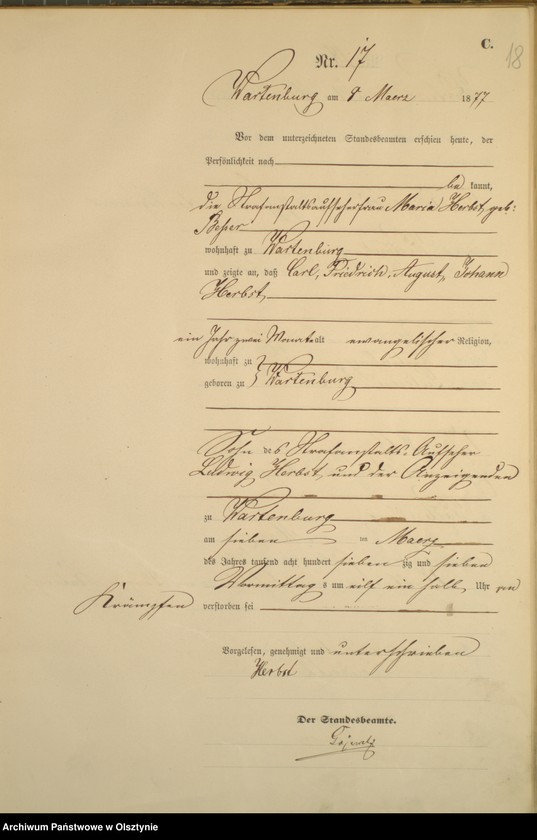 C.
18
Nr. 17
Wartenburg am 8 Maerz 1877
Vor dem unterzeichneten Standesbeamten erschien heute, der
Persönlichkeit nach
be kannt,
die Strafanstaltsaufseherfrau Maria Herbst, geb:
wohnhaft zu Wartenburg
und zeigte an, daß Carl, Friedrich, August, Johann
Herbst,
ein Jahr zwei Monate alt evangelischer Religion,
wohnhaft zu
geboren zu Wartenburg
Sohn des Strafanstalts-Aufseher
Ludwig Herbst, und der Anzeigenden
zu Wartenburg
am sieben im Maerz
des Jahres tausend acht hundert sieben zig und sieben
Vormittag s um eilf ein halb Uhr
Krämpfen
verstorben sei
Vorgelesen, genehmigt und unterschrieben
Herbst
Der Standesbeamte.
Archiwum Państwowe w Olsztynie